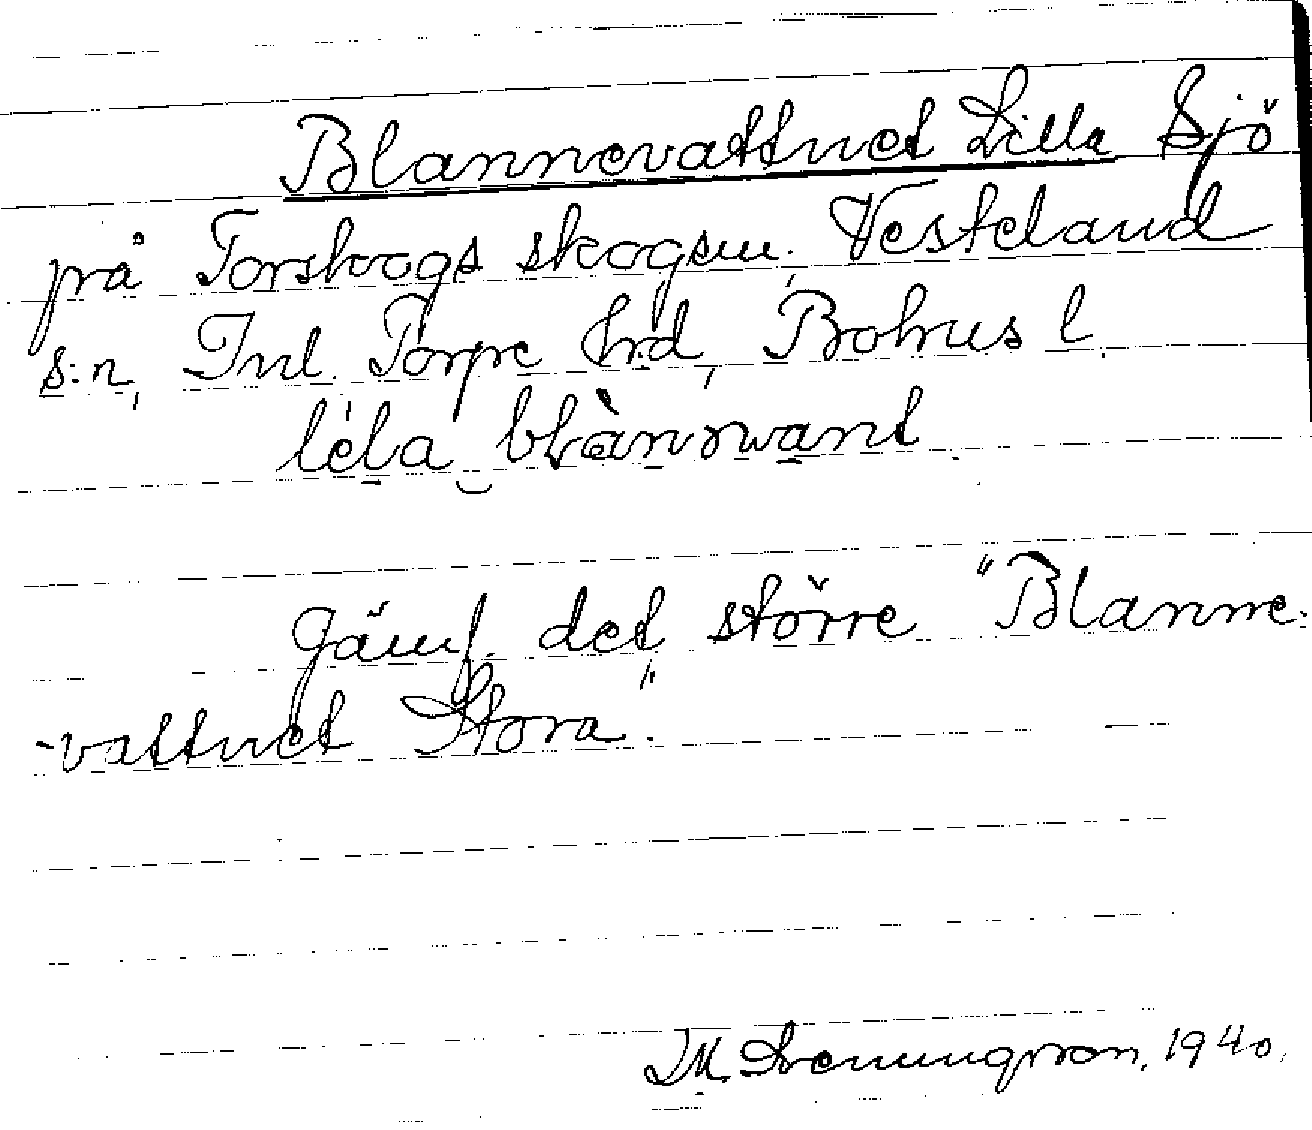 Blannevattnet Lilla Sjö
på Torskogs skogen, Vesteland
s:n, Inl. Torpe hrd, Bohus l.
lela blànnvant.
Jämf. det större "Blanne-
-vattnet Stora".
1940.